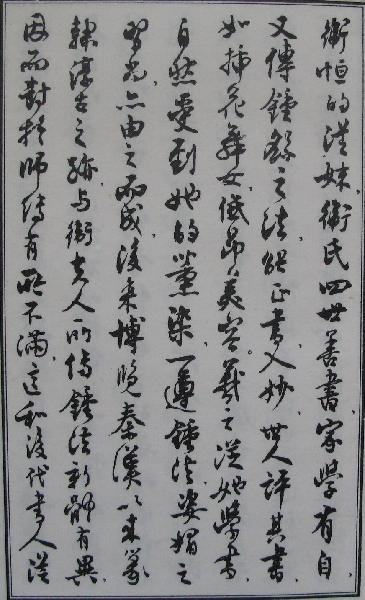 衛恒的從妹，衛氏四世善書，家學有自，
又傳鍾繇之法，能正書入妙，世人評其書，
如插花舞女，低昂美容。羲之從她學書，
自然受到她的薰染，一遵鍾法，姿媚之
習尚，亦由之而成，後來博覽秦漢以來篆
隸淳古之跡，與衛夫人所傳鍾法新體有異，
因而對於師傳有所不滿，這和後代書人從